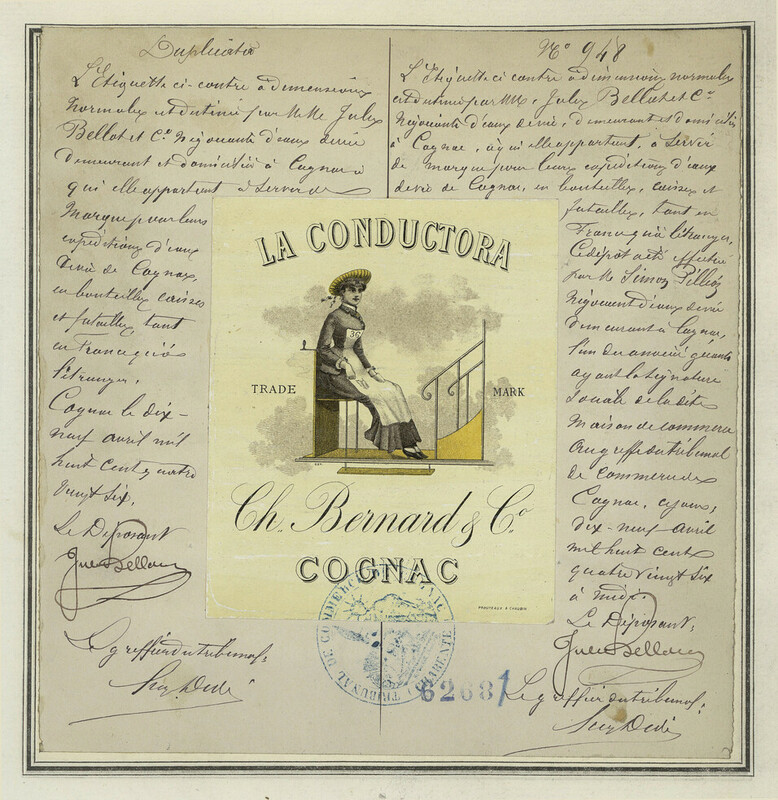 Duplicata
L'Etiquette ci-contre à dimensions
normales est destiné par MM. Jules
Bellot et Cie Négociants d'eaux devie
demeurant et domiciliés à Cognac à
qui elle appartient à Servir de
Marque pour leurs
expéditions d'eaux
devie de Cognac,
en bouteilles caisses
et futailles, tant
en France qu'à
l'étranger.
Cognac le dix-
neuf avril mil
huit cent quatre
vingt six.
Le Déposant
Jules Bellot
Le greffier du tribunal:
No 948
L'Etiquette ci contre à dimensions normales
est destiné par MM. Jules Bellot et Cie
Négociants d'eaux devie, demeurant et domiciliés
à Cognac, à qui elle appartient, à Servir
de marque pour leurs expéditions d'eaux
devie de Cognac, en bouteilles, caisses et
futailles, tant en
France qu'à l'étranger,
Ce dépôt a été effectué
par M. Simon
Négociant d'eaux devie
demeurant à Cognac,
l'un des
ayant la signature
Sociale de la dite
Maison de commerce
au greffe du tribunal
de commerce de
Cognac, ce jour,
dix-neuf avril
mil huit cent
quatre vingt six
à midi.
Le Déposant,
Jules Bellot
Le greffier du tribunal:
LA CONDUCTORA
36
TRADE MARK
Ch. Bernard & Co
COGNAC
TRIBUNAL DE COMMERCE DE COGNAC CHARENTE
62681